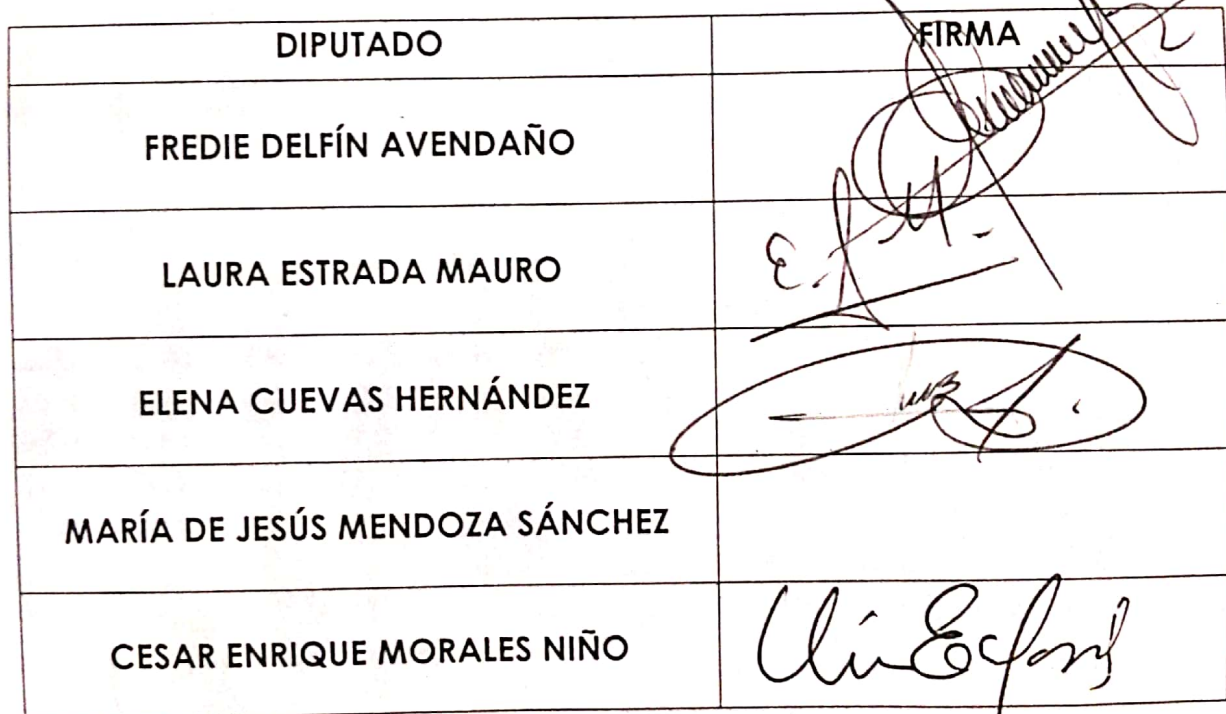 DIPUTADO FIRMA
FREDIE DELFÍN AVENDAÑO
LAURA ESTRADA MAURO
E. M.
ELENA CUEVAS HERNÁNDEZ
MARÍA DE JESÚS MENDOZA SÁNCHEZ
CESAR ENRIQUE MORALES NIÑO